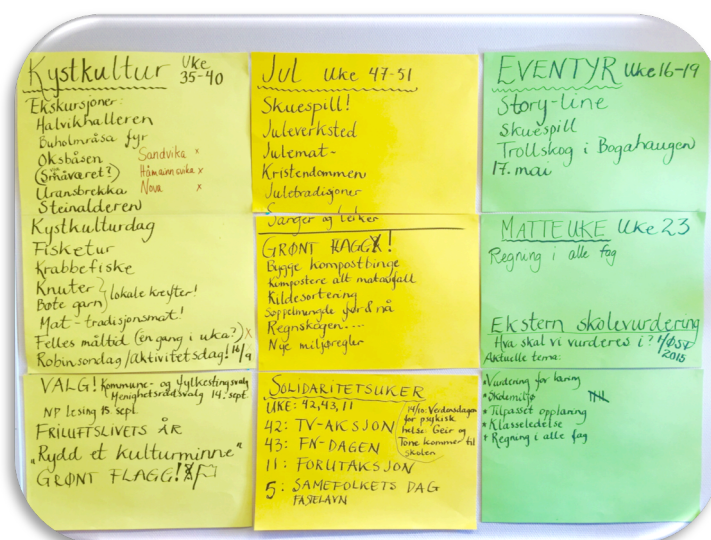 Kystkultur Uke 35-40
Ekskursjoner:
Halvikhalleren
Buholmråsa fyr
Oksbåsen
(Småværet?)
Uransbrekka
Steinalderen
Sandvika x
Håmainnsvika x
Nova x
Kystkulturdag
Fisketur
Krabbefiske
Knuter
Bøte garn } lokale krefter!
Mat-tradisjonsmat!
Felles måltid (én gang i uka?) x
Robinsondag/Aktivitetsdag! 16/9
VALG! Kommune- og fylkestingsvalg
Menighetsrådsvalg 14. sept.
NP lesing 15. sept.
FRILUFTSLIVETS ÅR
"Rydd et kulturminne"
GRØNT FLAGG!
Jul Uke 47-51
Skuespill!
Juleverksted
Julemat-
Kristendommen
Juletradisjoner
Sanger og leiker
GRØNT FLAGG!
Bygge kompostbinge
Kompostere alt matavfall
Kildesortering
Søppelmengde før & nå
Regnskogen....
Nye miljøregler
SOLIDARITETSUKER
UKE: 42, 43, 11
42: TV-AKSJON
43: FN-DAGEN
11: FORUTAKSJON
5: SAMEFOLKETS DAG
FASTELAVN
14/10: Verdensdagen
for psykisk
helse: Geir og
Tone kommer til
skolen
EVENTYR Uke 16-19
Story-line
Skuespill
Trollskog i Bogahaugen
17. mai
MATTEUKE Uke 23
Regning i alle fag
Ekstern skolevurdering
Hva skal vi vurderes i?
Aktuelle tema:
2015
• Vurdering for læring
• Skolemiljø
• Tilpasset opplæring
• Klasseledelse
• Regning i alle fag